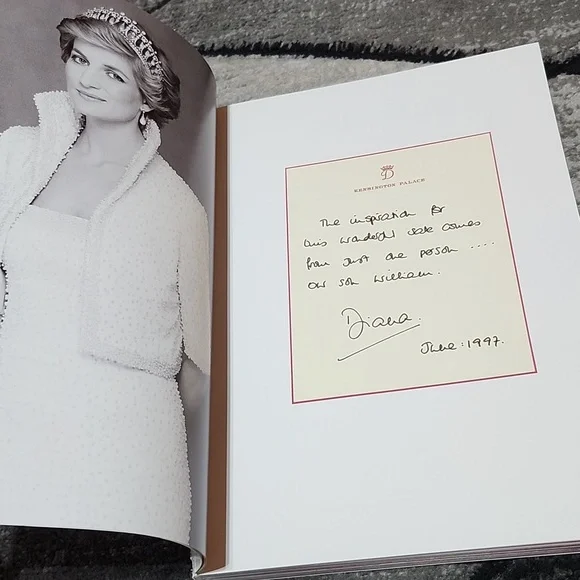 D
KENSINGTON PALACE
The inspiration for
this wonderful sale comes
from just one person ....
our son William.
Diana.
June: 1997.